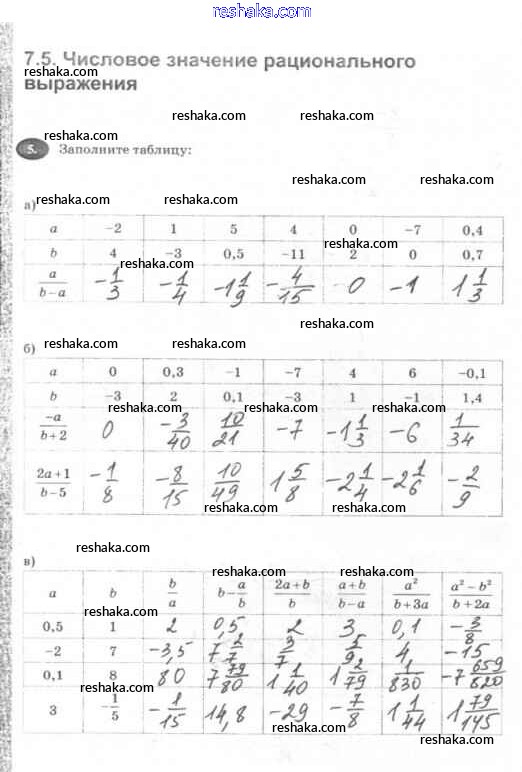 reshaka.com
7.5. Числовое значение рационального
reshaka.com
выражения
reshaka.com reshaka.com
reshaka.com
5. Заполните таблицу:
reshaka.com reshaka.com
reshaka.com reshaka.com
а)
a −2 1 5 4 0 −7 0,4
b 4 −3 0,5 −11 2 0 0,7
reshaka.com reshaka.com
a/(b−a) −1/3 −1/4 −1 1/9 −4/15 0 −1 1 1/3
reshaka.com reshaka.com
reshaka.com reshaka.com
б)
a 0 0,3 −1 −7 4 6 −0,1
reshaka.com reshaka.com
b −3 2 0,1 −3 1 −1 1,4
−a/(b+2) 0 −3/40 10/21 −7 −1 1/3 −6 1/34
reshaka.com reshaka.com
(2a+1)/(b−5) −1/8 −8/15 10/49 1 5/8 −2 1/4 −2 1/6 −2/9
reshaka.com reshaka.com
reshaka.com
в)
reshaka.com reshaka.com
a b b/a b−a/b (2a+b)/b (a+b)/(b−a) a²/(b+3a) (a²−b²)/(b+2a)
reshaka.com reshaka.com
0,5 1 2 0,5 2 3 0,1 −3/8
−2 7 −3,5 7 2/7 3/7 5/9 4 −15
reshaka.com reshaka.com
0,1 8 80 7 79/80 1 1/40 1 2/79 1/830 −7 659/820
reshaka.com reshaka.com
3 −1/5 −1/15 14,8 −29 −7/8 1 1/44 1 79/145
reshaka.com reshaka.com
reshaka.com